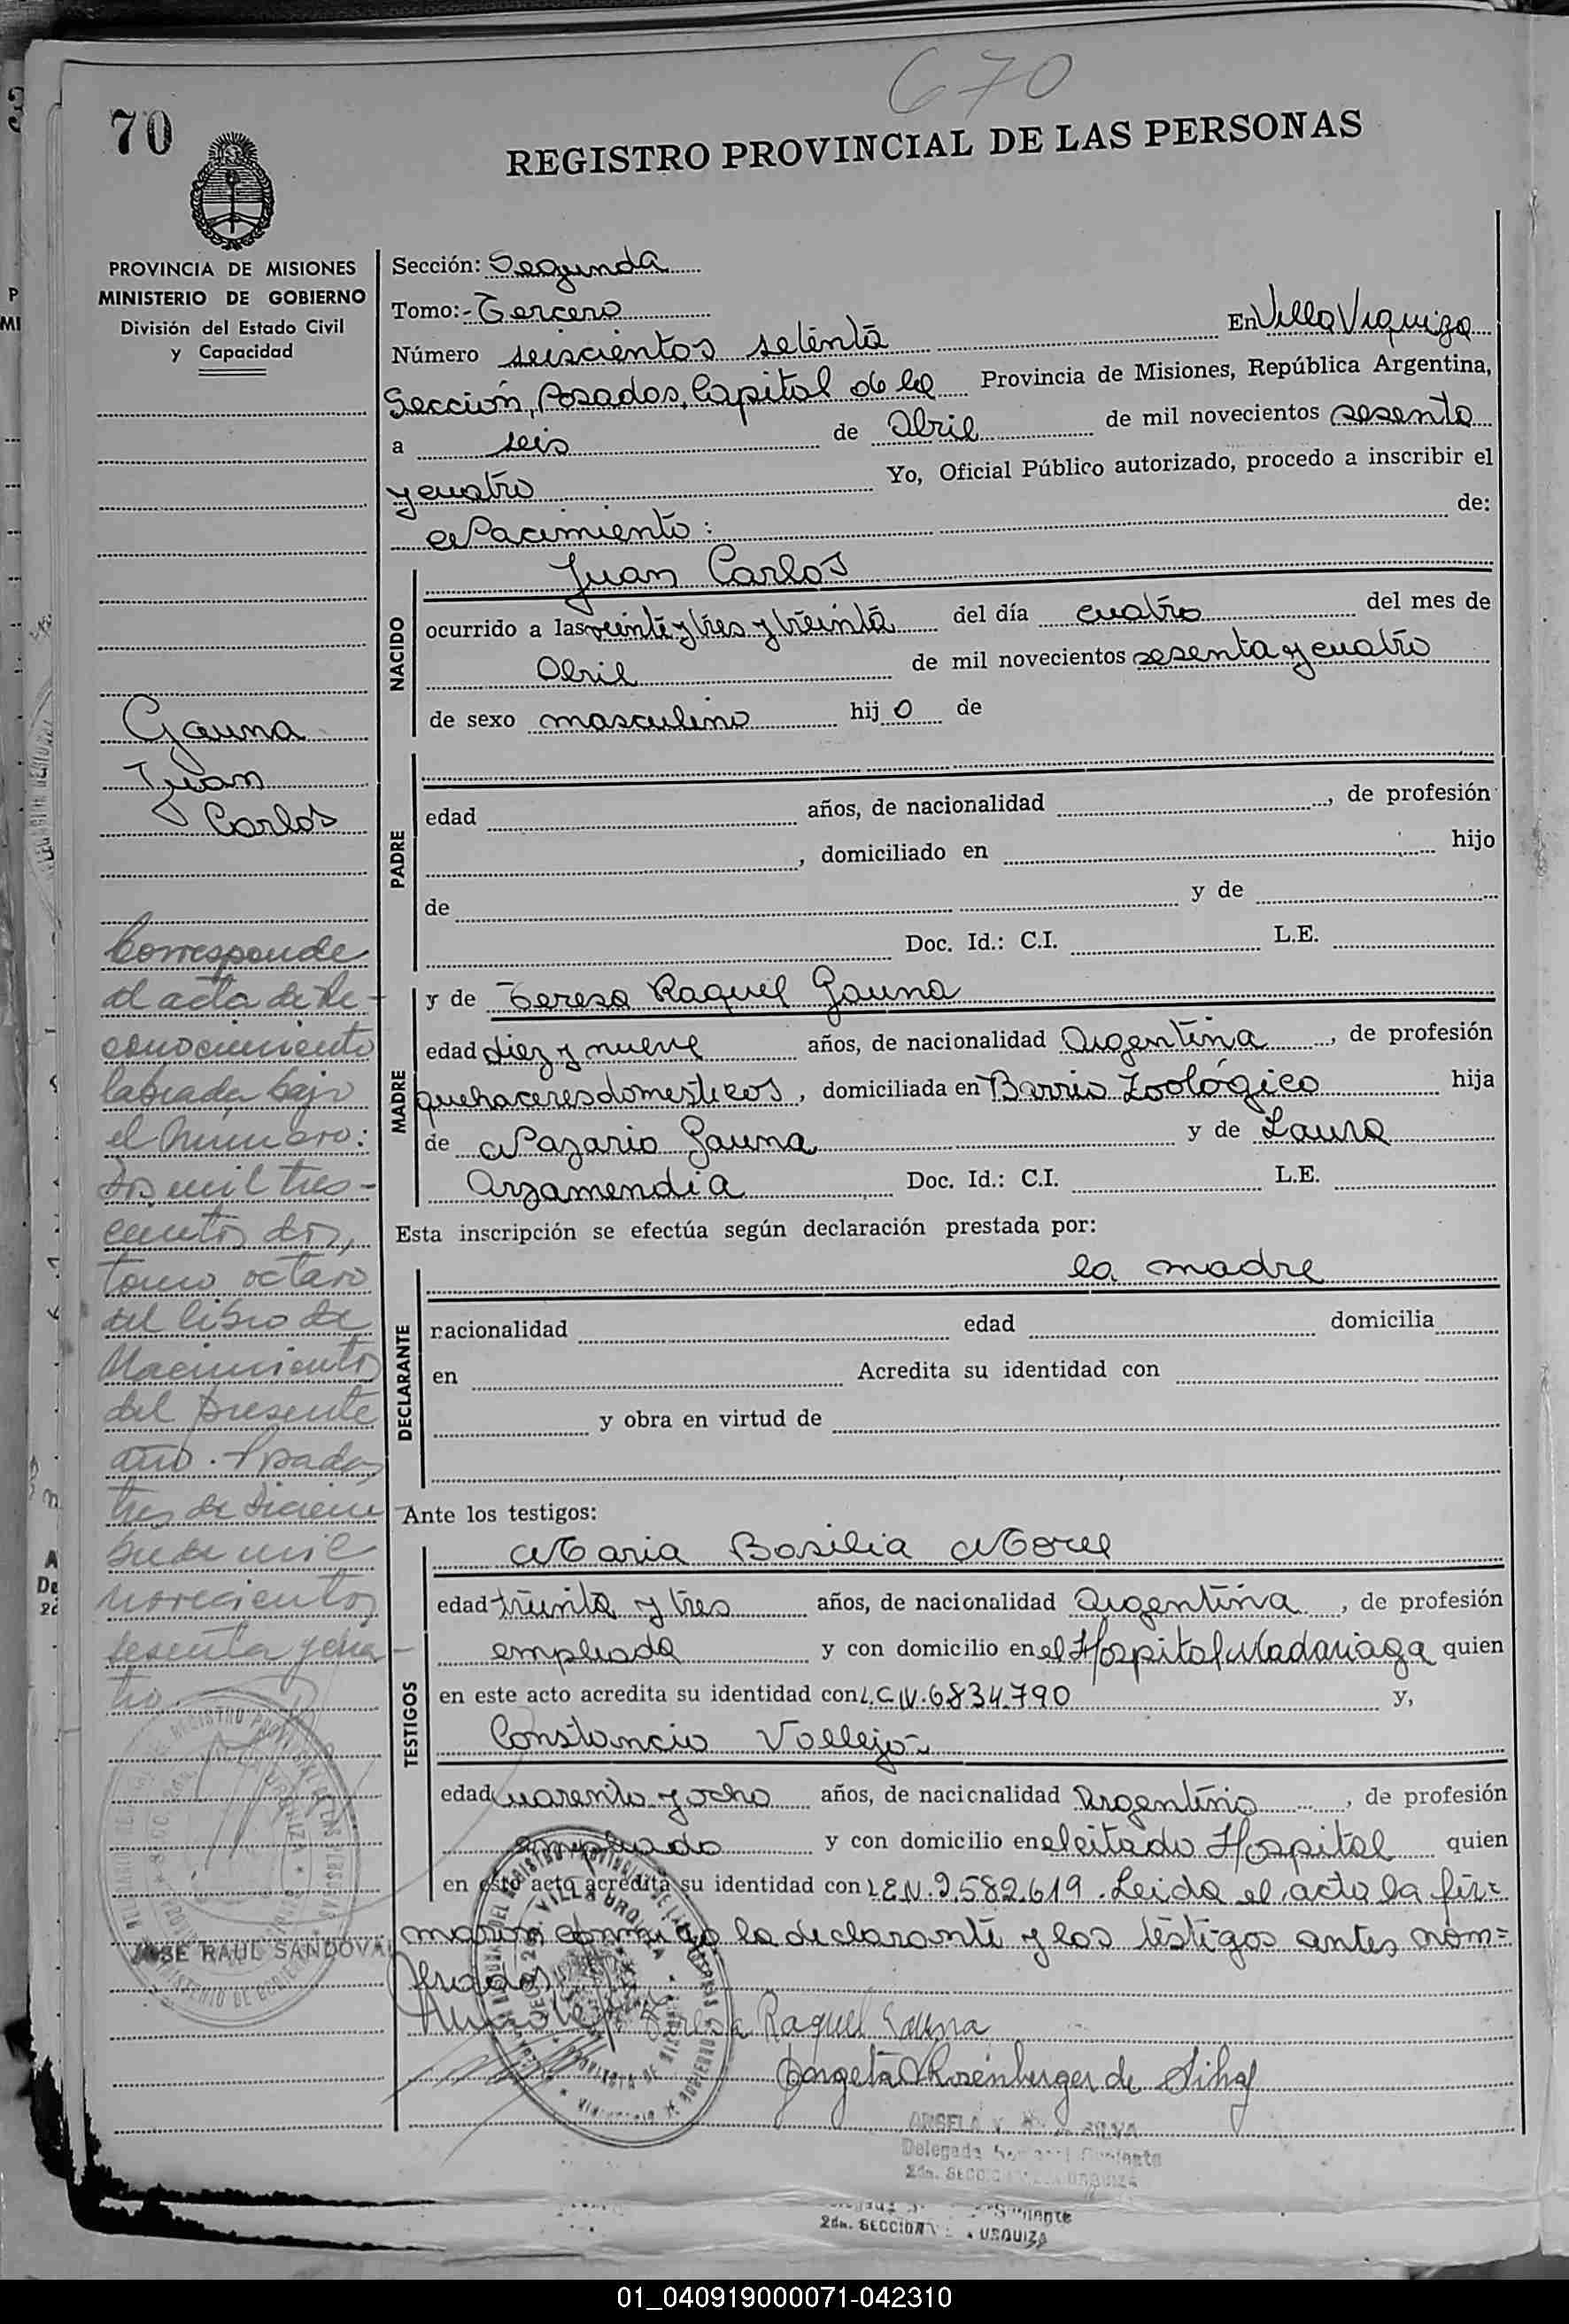 670
70
REGISTRO PROVINCIAL DE LAS PERSONAS
PROVINCIA DE MISIONES
MINISTERIO DE GOBIERNO
División del Estado Civil
y Capacidad
Gauna
Juan
Carlos
Corresponde
al acta de Re-
conocimiento
labrada bajo
el Número:
Dos mil tres-
cientos dos,
tomo octavo
del libro de
Nacimientos
del presente
año. Posadas,
tres de Diciem
bre de mil
novecientos
sesenta y cua-
tro.
JOSE RAUL SANDOVAL
Sección: Segunda
Tomo:- Tercero
Número seiscientos setenta En Villa Urquiza
Sección, Posadas, Capital de la Provincia de Misiones, República Argentina,
a seis de Abril de mil novecientos sesenta
y cuatro Yo, Oficial Público autorizado, procedo a inscribir el
Nacimiento: de:
NACIDO
Juan Carlos
ocurrido a las veinte y tres y treinta del día cuatro del mes de
Abril de mil novecientos sesenta y cuatro
de sexo masculino hij o de
PADRE
edad años, de nacionalidad , de profesión
, domiciliado en hijo
de y de
Doc. Id.: C.I. L.E.
MADRE
y de Teresa Raquel Gauna
edad diez y nueve años, de nacionalidad Argentina , de profesión
quehaceres domesticos , domiciliada en Barrio Zoológico hija
de Nazario Gauna y de Laura
Arzamendia Doc. Id.: C.I. L.E.
Esta inscripción se efectúa según declaración prestada por:
la madre
DECLARANTE
racionalidad edad domicilia
en Acredita su identidad con
y obra en virtud de
Ante los testigos:
TESTIGOS
Maria Basilia Morel
edad treinta y tres años, de nacionalidad Argentina , de profesión
empleada y con domicilio en el Hospital Madariaga quien
en este acto acredita su identidad con L.C.N. 6834.790 y,
Constancio Vallejo-
edad cuarenta y ocho años, de nacionalidad Argentino , de profesión
empleado y con domicilio en el citado Hospital quien
en este acto acredita su identidad con L.E.N. 2.582.619. Leida el acta la fir=
maron conmigo la declarante y los testigos antes nom=
brados.
Teresa Raquel Gauna
Angela Rosenberger de Silva
ANGELA V. R. de SILVA
Delegada
2da. SECCION URQUIZA
2da. SECCION URQUIZA
01_040919000071-042310